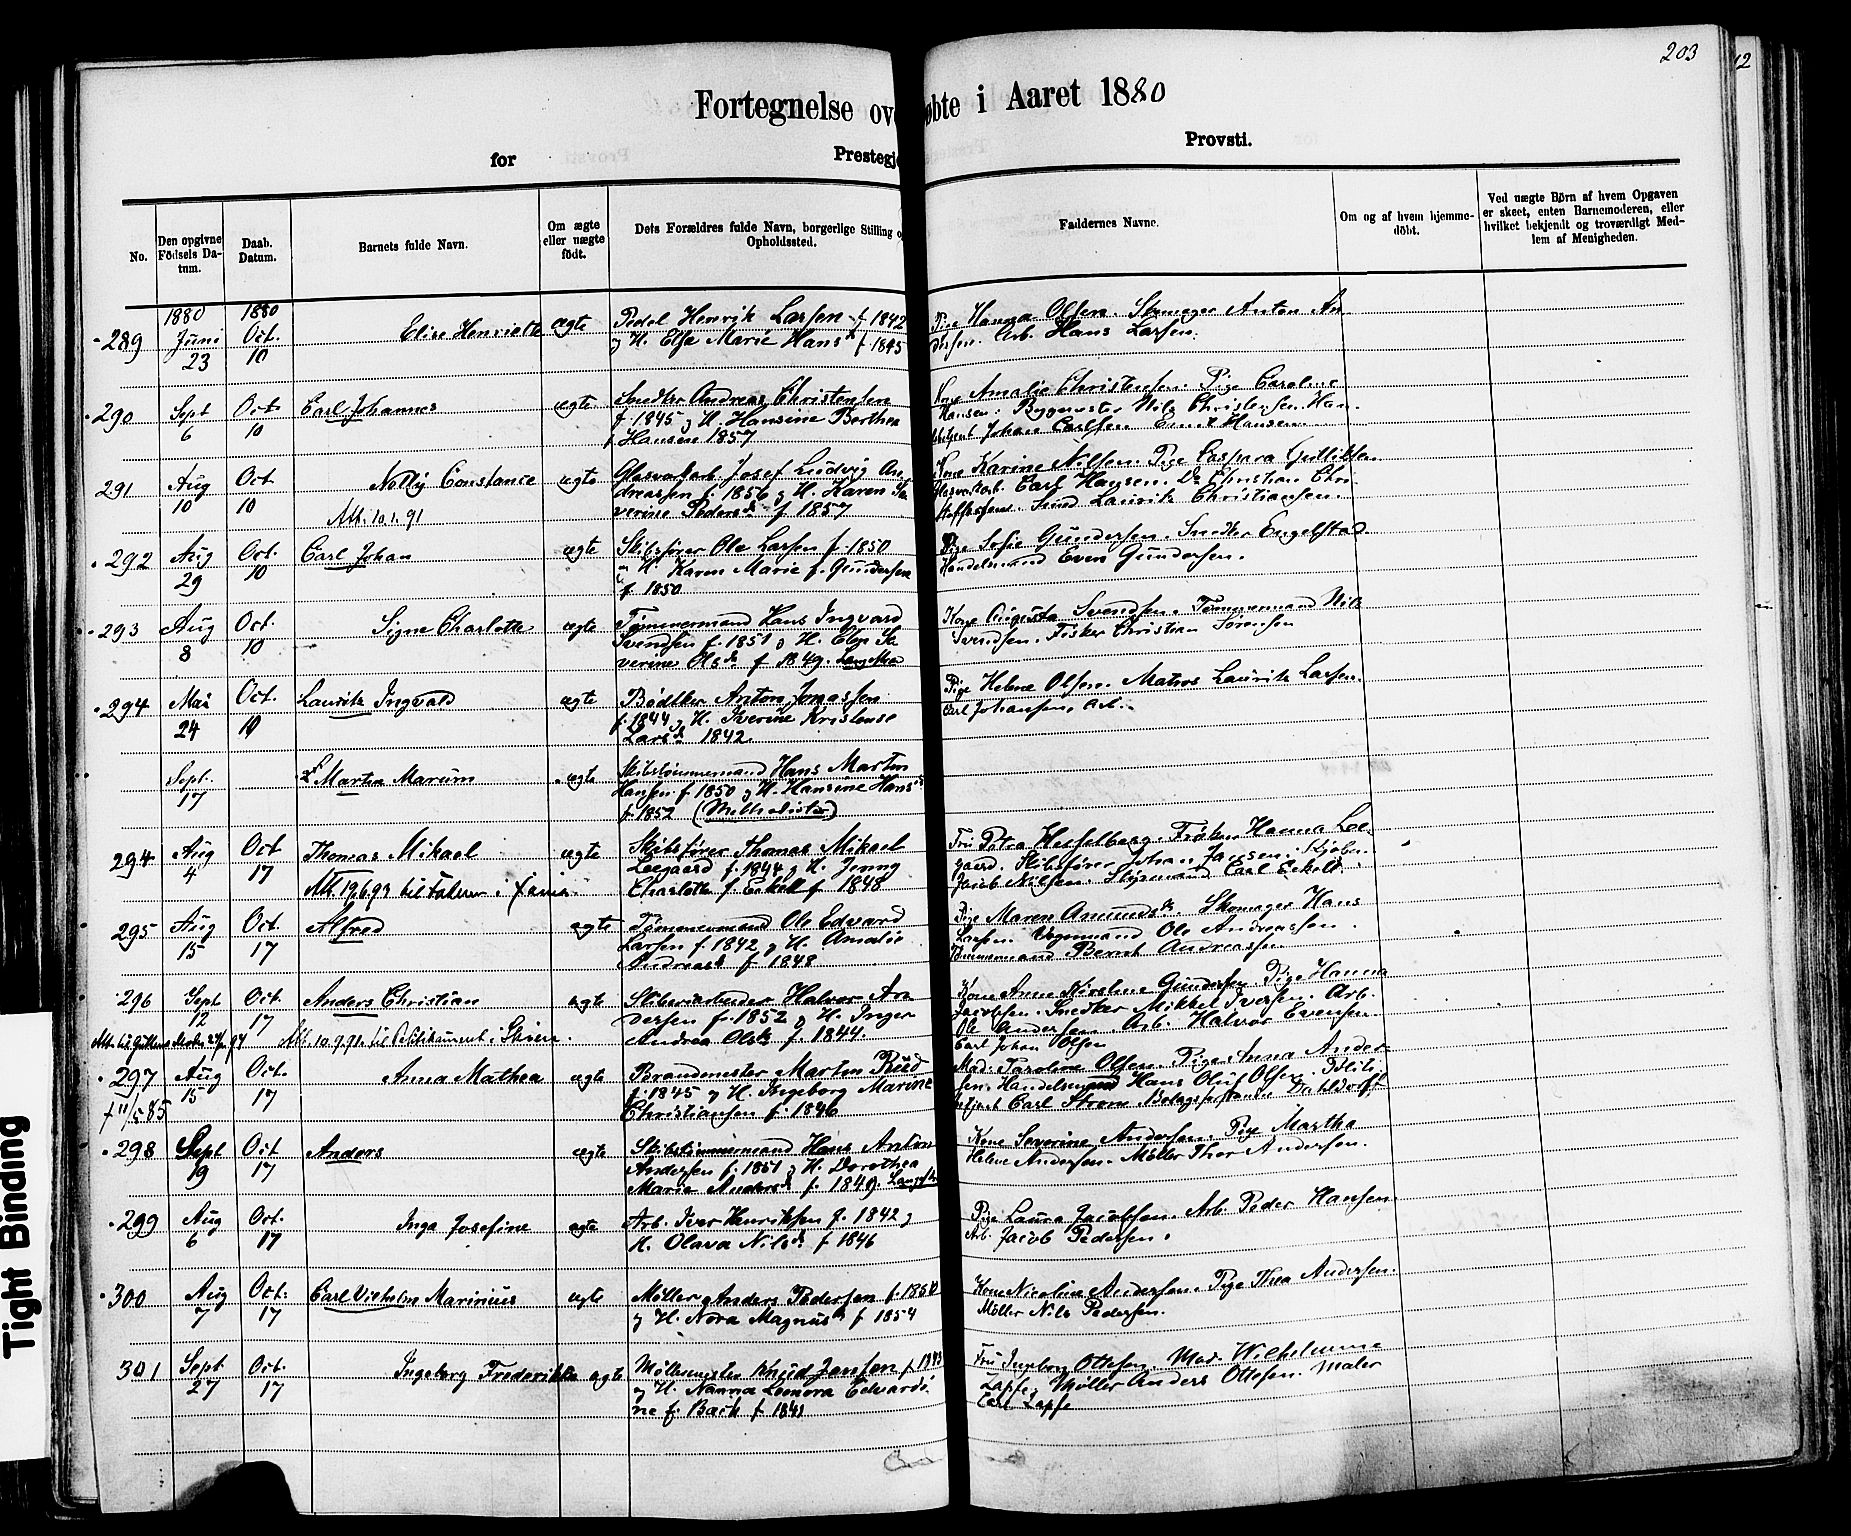 203
12
Fortegnelse ov øbte i Aaret 1880
for Prestegj Provsti.
No.
Den opgivne Födsels Da-tum.
Daab. Datum.
Barnets fulde Navn.
Om ægte eller uægte födt.
Dets Forældres fulde Navn, borgerlige Stilling o
Opholdssted.
Faddernes Navne.
Om og af hvem hjemme-
döbt.
Ved uægte Børn af hvem Opgaven
er skeet, enten Barnemoderen, eller
hvilket bekjendt og troværdigt Med-
lem af Menigheden.
289 1880 Juni 23 1880 Oct. 10 Elise Henriette ægte
Pedel Henrik Larsen f 1842
og H. Else Marie Hans d f. 1845
Pige Hanna Olsen. Skomager Anton An
dersen. Arb. Hans Larsen.
290 Sept 6 Oct. 10 Carl Johannes ægte
Snedker Andreas Christensen
f 1845 og H. Hansine Berthea
f Hansen 1857
Kone Amalie Christensen. Pige Caroline
Hansen. Bygmester Nils Christensen. Han-
delsbetjent Johan Carlsen Emil Hansen.
291 Aug 10 Oct 10 Nelly Constance ægte
Att. 10.1.91
Glasværkarb. Josef Ludvig An
dreassen f. 1856 og H. Karen Se
verine Peders d. f. 1857
Kone Karine Nilsen. Pige Caspara Gulliksen
Glasværkarb. Carl Hansen. Do Christian Chri
stoffersen. Smed Lauritz Christiansen.
292 Aug 29 Oct. 10 Carl Johan ægte
Skibsfører Ole Larsen f. 1850
og H. Karen Marie f. Gundersen
f. 1850
Pige Sofie Gundersen. Snedker Engelstad
Handelsmand Even Gundersen.
293 Aug 8 Oct. 10 Signe Charlotte ægte
Tømmermand Hans Ingvard
Svendsen f. 1851 og H. Elen Se
verine Ols d. f 1849.
Kone Augusta Svendsen. Tømmermand Nils
Svendsen. Fisker Christian Sørensen
294 Mai 24 Oct. 10 Lauritz Ingvald ægte
Bødtker Anton Jonassen
f. 1844 og H. Iverine Kristense
Lars d. 1842.
Pige Helene Olsen. Matros Lauritz Larsen.
Carl Johansen, Arb.
Sept. 17 Martha Marum ægte
Skibstømmermand Hans Martin
Hansen f 1850 og H. Hansine Hans d
f. 1852 (Methodister)
294 Aug 4 Oct 17 Thomas Mikael ægte
Att. 19.6.93 til Faderen i
Skibsfører Thomas Mikael
Leegaard f. 1844 og H. Jenny
Charlotte f. Eckell f 1848
Fru Petra Hesselberg. Frøken Hanna Lee-
gaard. Skibsfører Johan Jansen.
Jacob Nilsen. Styrmand Carl Eckell.
295 Aug 15 Oct. 17 Alfred ægte
Tømmermand Ole Edvard
Larsen f. 1842 og H. Amalie
Andreas d. f 1848
Pige Maren Amunds d. Skomager Hans
Larsen. Vognmand Ole Andreassen.
Tømmermand Bernt Andreassen
296 Sept 12 Oct. 17 Anders Christian ægte
Att. 10.9.91. til i Skien
Skiberiarbeider Halvor An
dersen f. 1852 og H. Inger
Andrea Ols d. f. 1844.
Kone Anne Kirstine Gundersen. Pige Hanna
Jacobsen. Snedker Mikkel Iversen. Arb.
Ole Andersen Arb. Halvor Evensen
Carl Johan Olsen
297 Aug 15 Oct. 17 Anna Mathea ægte
† 11/5 85
Brandmester Martin Ruud
f. 1845 og H. Ingeborg Marine
Christiansen f. 1846
Mad. Karoline Olsen. Pige Anna Ander-
sen. Handelsmand Hans Oluf Olsen. Politi
betjent Carl Strøm
298 Sept 19 Oct 17 Anders ægte
Skibstømmermand Hans Anton
Andersen f. 1851 og H. Dorothea
Marie Anders d. f. 1849
Kone Severine Andersen. Pige Martha
Helene Andersen. Møller Thor Andersen.
299 Aug 6 Oct. 17 Inga Josefine ægte
Arb. Iver Henriksen f. 1842 og
H. Olava Nils d. f 1846
Pige Laura Jacobsen. Arb. Peder Hansen
Arb. Jacob Pedersen.
300 Aug 7 Oct. 17 Carl Vilhelm Marinius ægte
Møller Anders Pedersen f. 1850
og H. Nora Magnus d. f 1854
Kone Nicoline Andersen. Pige Thea Andersen.
Møller Nils Pedersen.
301 Sept. 27 Oct. 17 Ingeborg Frederikke ægte
Møllemester Knud Jensen f. 1843
og H. Nanna Leonora Edvardi
ne f. Bach f 1841
Fru Ingeborg Ottesen. Mad. Wilhelmine
Zapfe. Møller Anders Ottesen. Maler
Carl Zapfe
Tight Binding